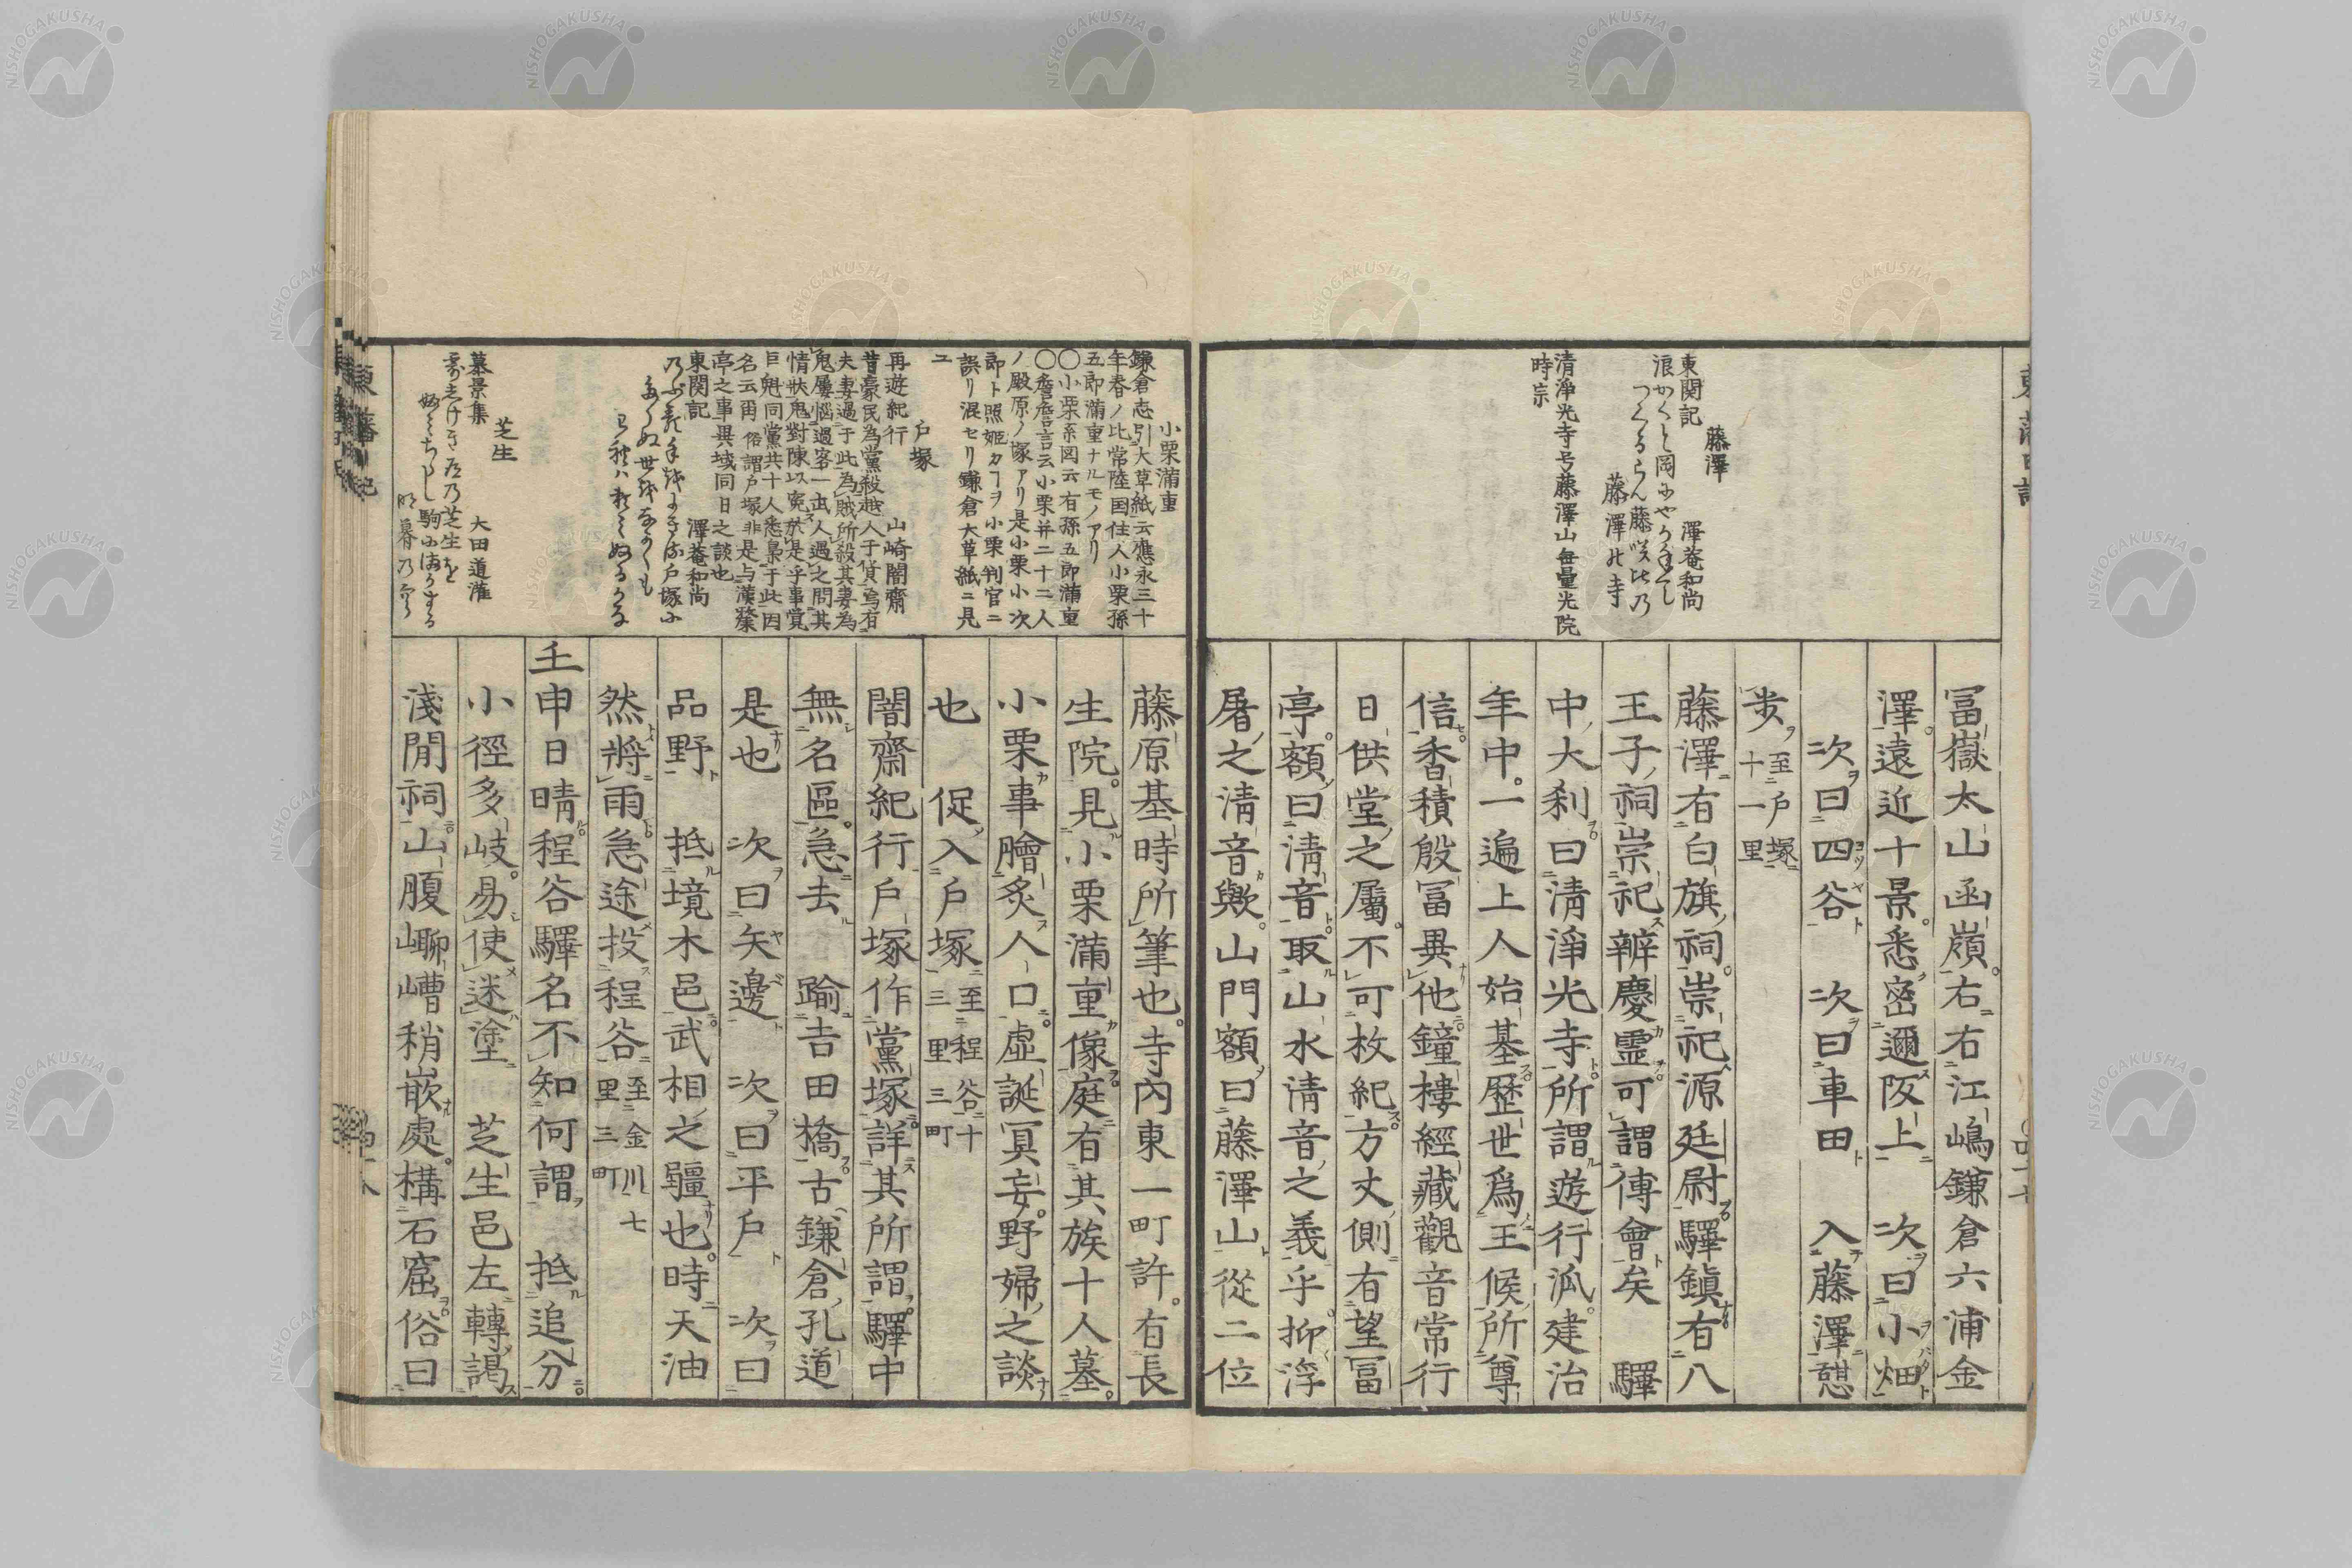 藤澤
東関記 澤菴和尚
清淨光寺号藤澤山無量光院
時宗
冨嶽太山函嶺右右江嶋鎌倉六浦金
澤遠近十景悉密邇阪上 次曰小畑
次曰四谷 次曰車田 入藤澤憇
歩至戸塚
十一里
藤澤有白旗祠崇祀源廷尉驛鎮有八
王子祠崇祀辨慶霊可謂傳會矣 驛
中大刹曰清淨光寺所謂遊行派建治
年中一遍上人始基歷世爲王候所尊
信香積殷冨異他鐘樓經藏觀音常行
日供堂之屬不可枚紀方丈側有望冨
亭額曰清音取山水清音之義乎抑浮
屠之淸音歟山門額曰藤澤山從二位
小栗満重
鎌倉志引大草紙云應永三十
年春ノ比常陸国住人小栗孫
五郎満重ナルモノアリ
〇小栗系図云有孫五郎満重
〇詹詹言云小栗并二十二人
ノ殿原ノ塚アリ是小栗小次
郎ト照姫カヿヲ小栗判官ニ
誤リ混セリ鎌倉大草紙ニ見
ユ
戸塚
再遊紀行 山崎闇齋
昔豪民為黨殺越人于貨焉有
夫妻過于此為賊所殺其妻為
鬼屢惱過客一武人過之問其
情狀鬼對陳以寃於是乎事覚
巨魁同黨共十人悉梟于此因
名云爾俗謂戸塚非是与漢蔡
亭之事異域同日之談也
東関記 澤菴和尚
芝生
慕景集 大田道灌
藤原基時所筆也寺內東一町許有長
生院見小栗満重像庭有其族十人墓
小栗事膾炙人口虛誕冥妄野婦之談
也 促入戸塚至程谷十
三里三町
闇齋紀行戸塚作黨塚詳其所謂驛中
無名區急去 踰吉田橋古鎌倉孔道
是也 次曰矢邊 次曰平戸 次曰
品野 抵境木邑武相之疆也時天油
然將雨急途投程谷至金川七
里三町
壬申日晴程谷驛名不知何謂 抵追分
小徑多岐易使迷塗 芝生邑左轉謁
淺間祠山腹嶗嶆稍嵌處構石窟俗曰